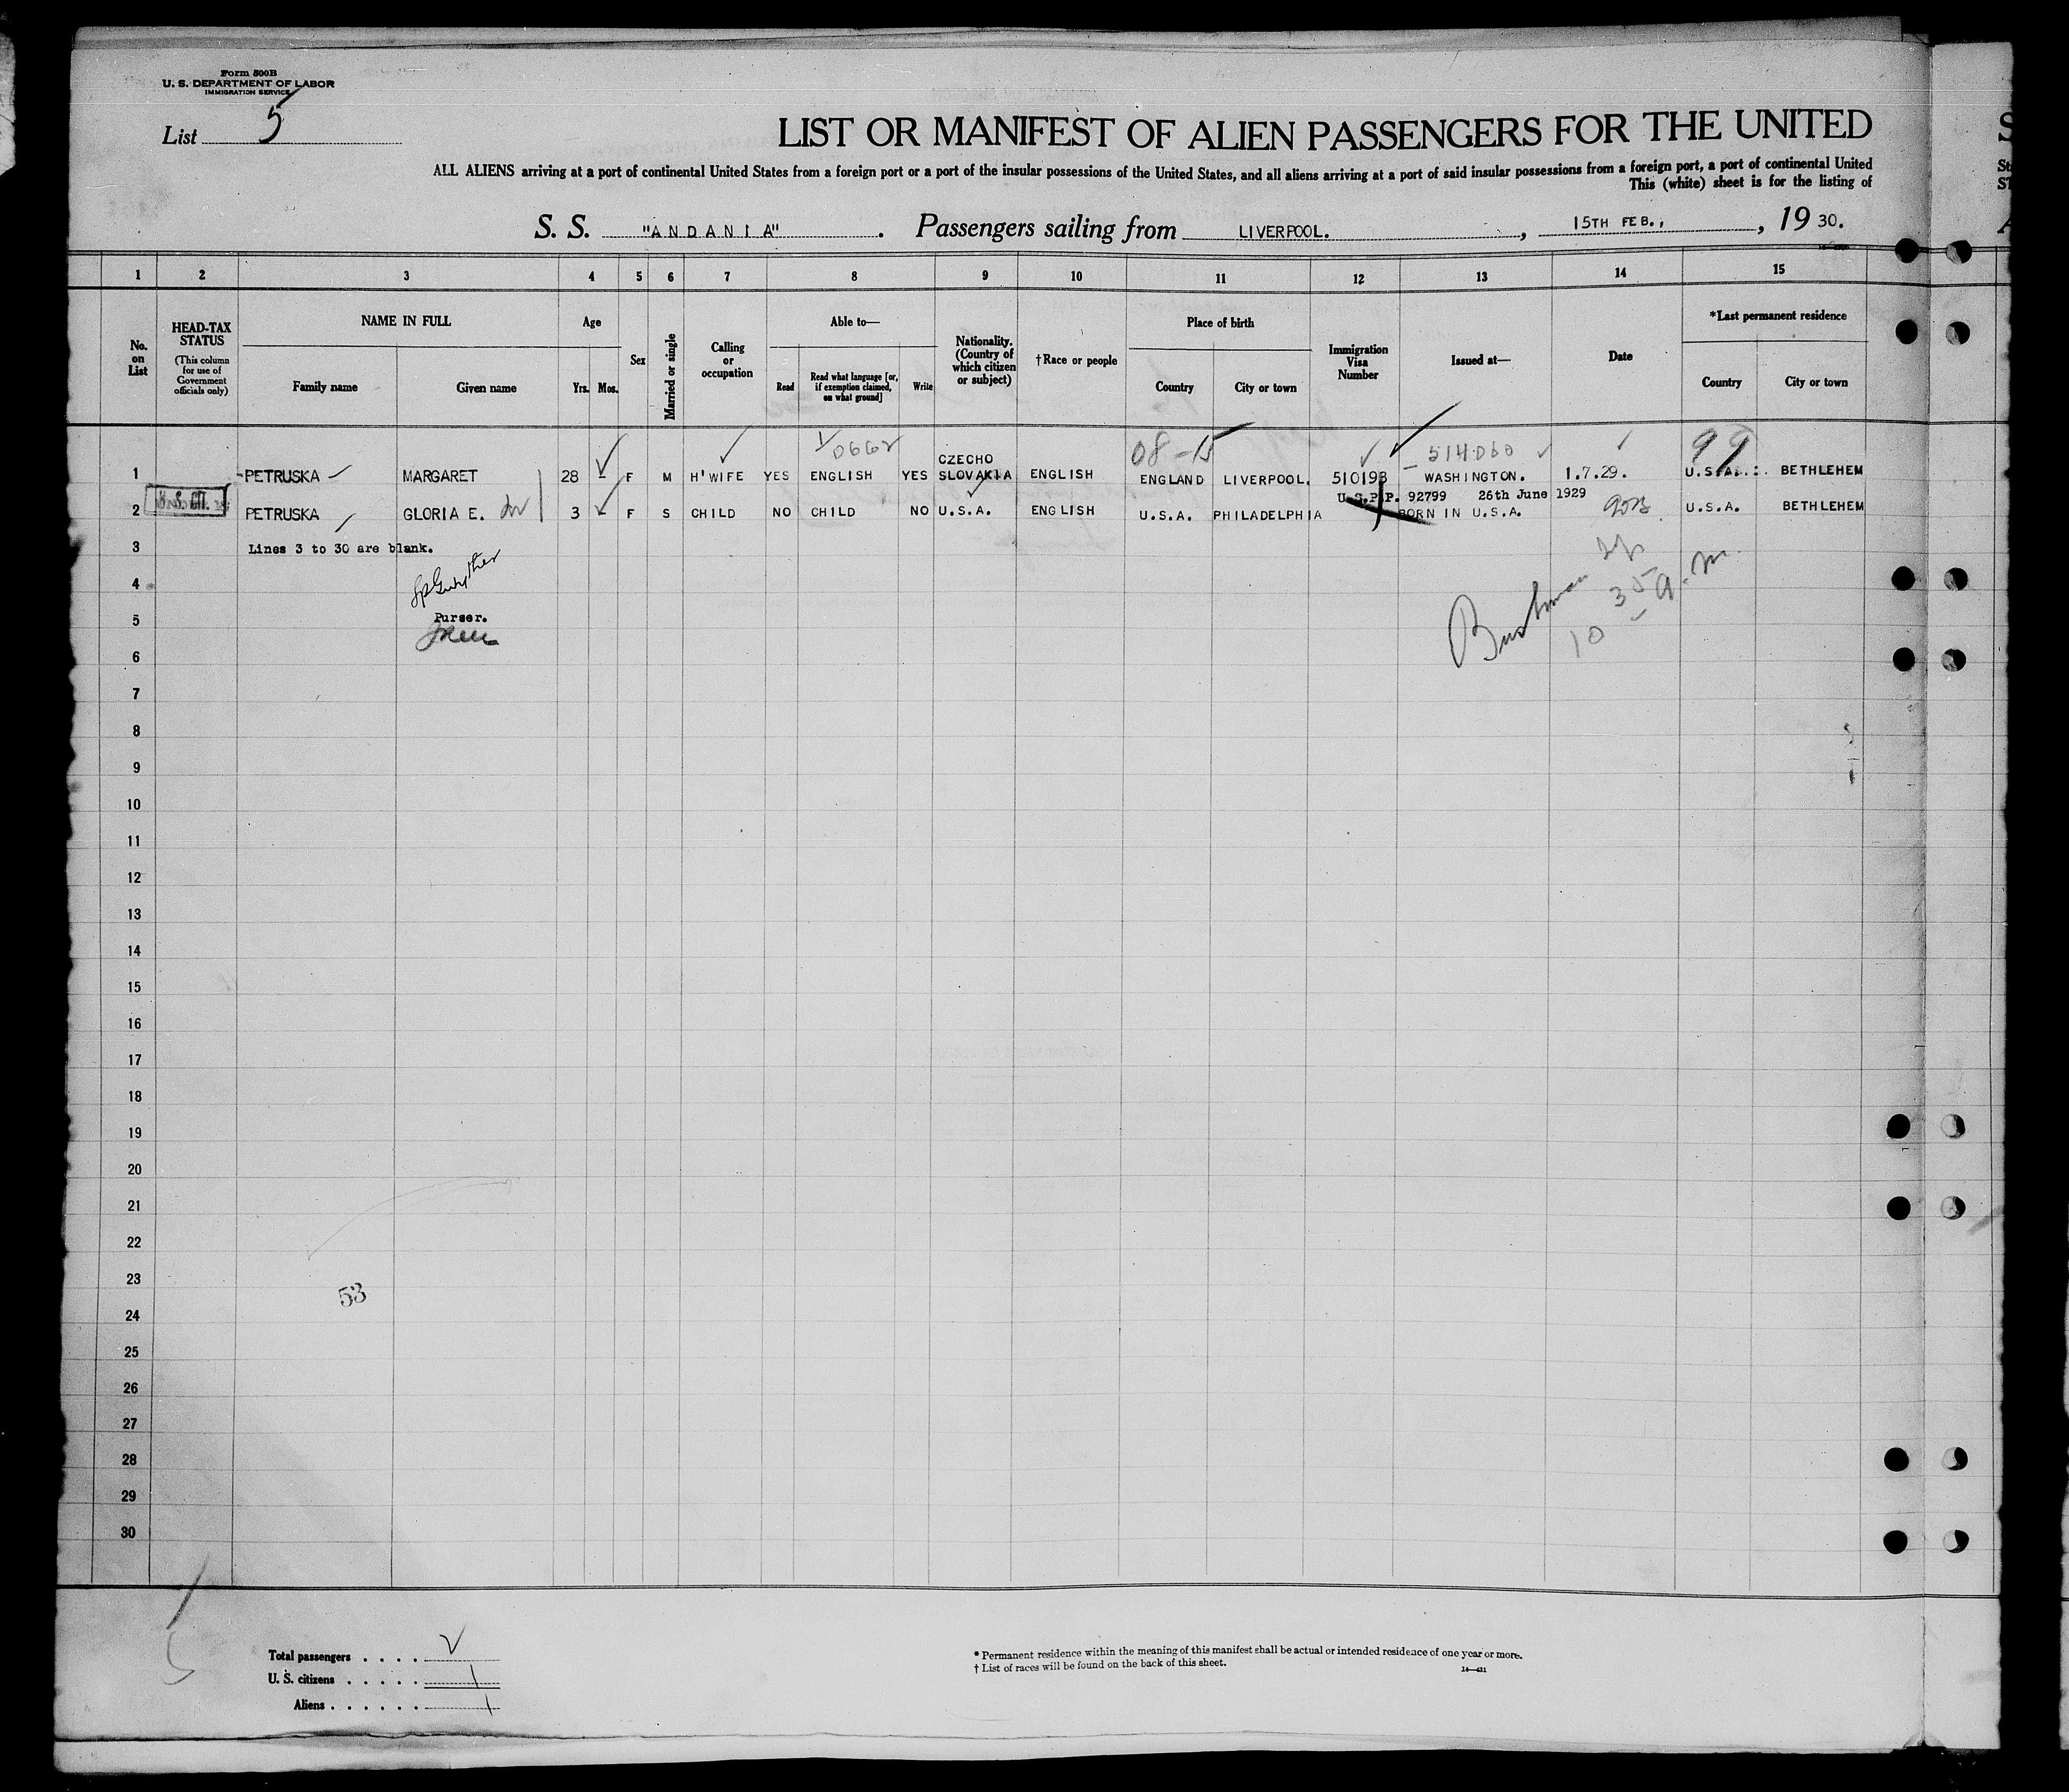 Form 500B
U. S. DEPARTMENT OF LABOR
IMMIGRATION SERVICE
List 5
LIST OR MANIFEST OF ALIEN PASSENGERS FOR THE UNITED
ALL ALIENS arriving at a port of continental United States from a foreign port or a port of the insular possessions of the United States, and all aliens arriving at a port of said insular possessions from a foreign port, a port of continental United
This (white) sheet is for the listing of
S. S. "ANDANIA". Passengers sailing from LIVERPOOL., 15TH FEB., , 19 30.
1 2 3 4 5 6 7 8 9 10 11 12 13 14 15
No. on List
HEAD-TAX STATUS
(This column for use of Government officials only)
NAME IN FULL
Family name Given name
Age
Yrs. Mos.
Sex
Married or single
Calling or occupation
Able to—
Read
Read what language [or, if exemption claimed, on what ground]
Write
Nationality. (Country of which citizen or subject)
†Race or people
Place of birth
Country City or town
Immigration Visa Number
Issued at—
Date
*Last permanent residence
Country City or town
08-15 514060 99
1 PETRUSKA MARGARET 28 - F M H'WIFE YES ENGLISH YES CZECHO SLOVAKIA ENGLISH ENGLAND LIVERPOOL. 510193 WASHINGTON. 1.7.29. U.S.A. BETHLEHEM
U.S.P.P. 92799 26th June 1929
2 PETRUSKA GLORIA E. 3 - F S CHILD NO CHILD NO U.S.A. ENGLISH U.S.A. PHILADELPHIA BORN IN U.S.A. U.S.A. BETHLEHEM
3 Lines 3 to 30 are blank.
4
Purser.
5
Bushman 10 35 a.m.
6
7
8
9
10
11
12
13
14
15
16
17
18
19
20
21
22
23
53
24
25
26
27
28
29
30
Total passengers . . . . 2
U. S. citizens . . . . . 1
Aliens . . . . . . 1
* Permanent residence within the meaning of this manifest shall be actual or intended residence of one year or more.
† List of races will be found on the back of this sheet.
14—431